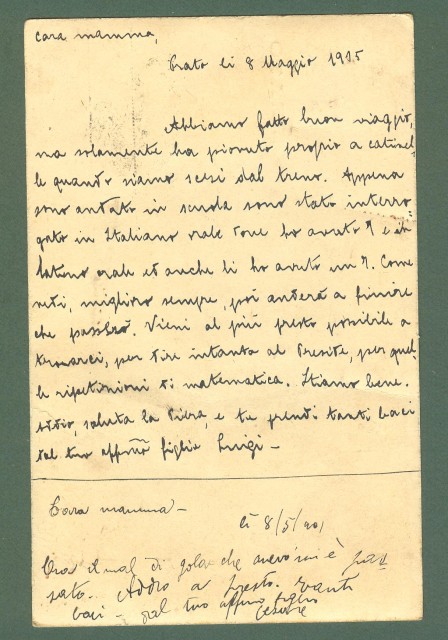 cara mamma,
Prato li 8 Maggio 1915
Abbiamo fatto buon viaggio,
ma solamente ha piovuto proprio a catinel-
le quando siamo scesi dal treno. Appena
sono andato in scuola sono stato interro
gato in Italiano orale dove ho avuto 7 e in
latino orale ed anche lì ho avuto un 7. Come
vedi, miglioro sempre, poi andrà a finire
che passerò. Vieni al più presto possibile a
trovarci, per dire intanto al Preside, per quel-
le ripetizioni di matematica. Stiamo bene.
Addio, saluta la Piera, e tu prendi tanti baci
dal tuo affmo figlio Luigi -
Cara mamma -
li 8/5/
Ora il mal di gola che avevo mi è pas
sato. Addio a presto. Tanti
baci - dal tuo affmo figlio
Cesare